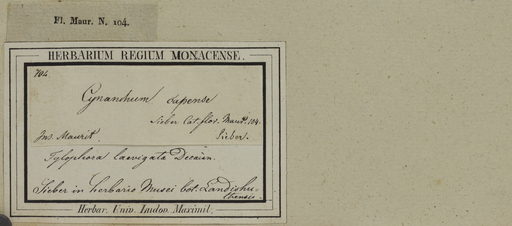 Fl. Maur. N. 104.
HERBARIUM REGIUM MONACENSE.
104
Cynanchum capense
Sieber Cat. flor. Maurit. 104.
Ins. Maurit. Sieber.
Tylophora laevigata Decaisn.
Sieber in herbario Musei bot. Landishu-
thensis.
Herbar. Univ. Ludov. Maximil.